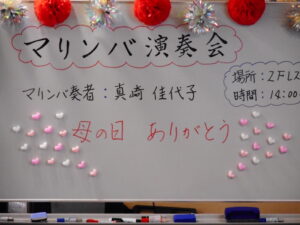 マリンバ演奏会
マリンバ奏者：真崎 佳代子
場所：2FLス
時間：14:00
母の日 ありがとう